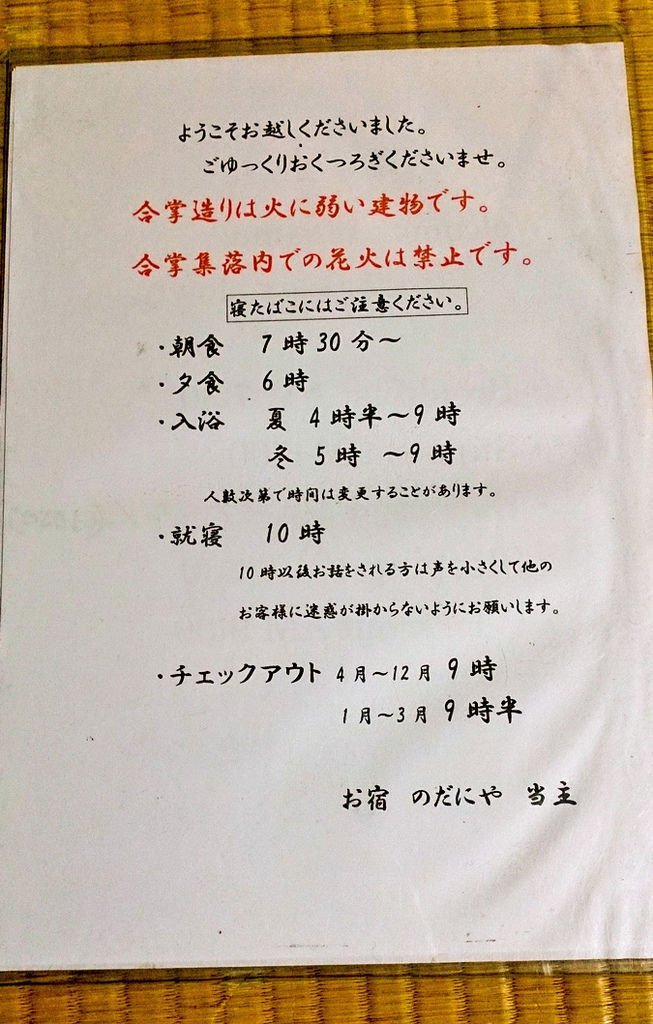 ようこそお越しくださいました。
ごゆっくりおくつろぎくださいませ。
合掌造りは火に弱い建物です。
合掌集落内での花火は禁止です。
寝たばこにはご注意ください。
・朝食 7時30分～
・夕食 6時
・入浴 夏 4時半～9時
冬 5時 ～9時
人数次第で時間は変更することがあります。
・就寝 10時
10時以後お話をされる方は声を小さくして他の
お客様に迷惑が掛からないようにお願いします。
・チェックアウト 4月～12月 9時
1月～3月 9時半
お宿 のだにや 当主